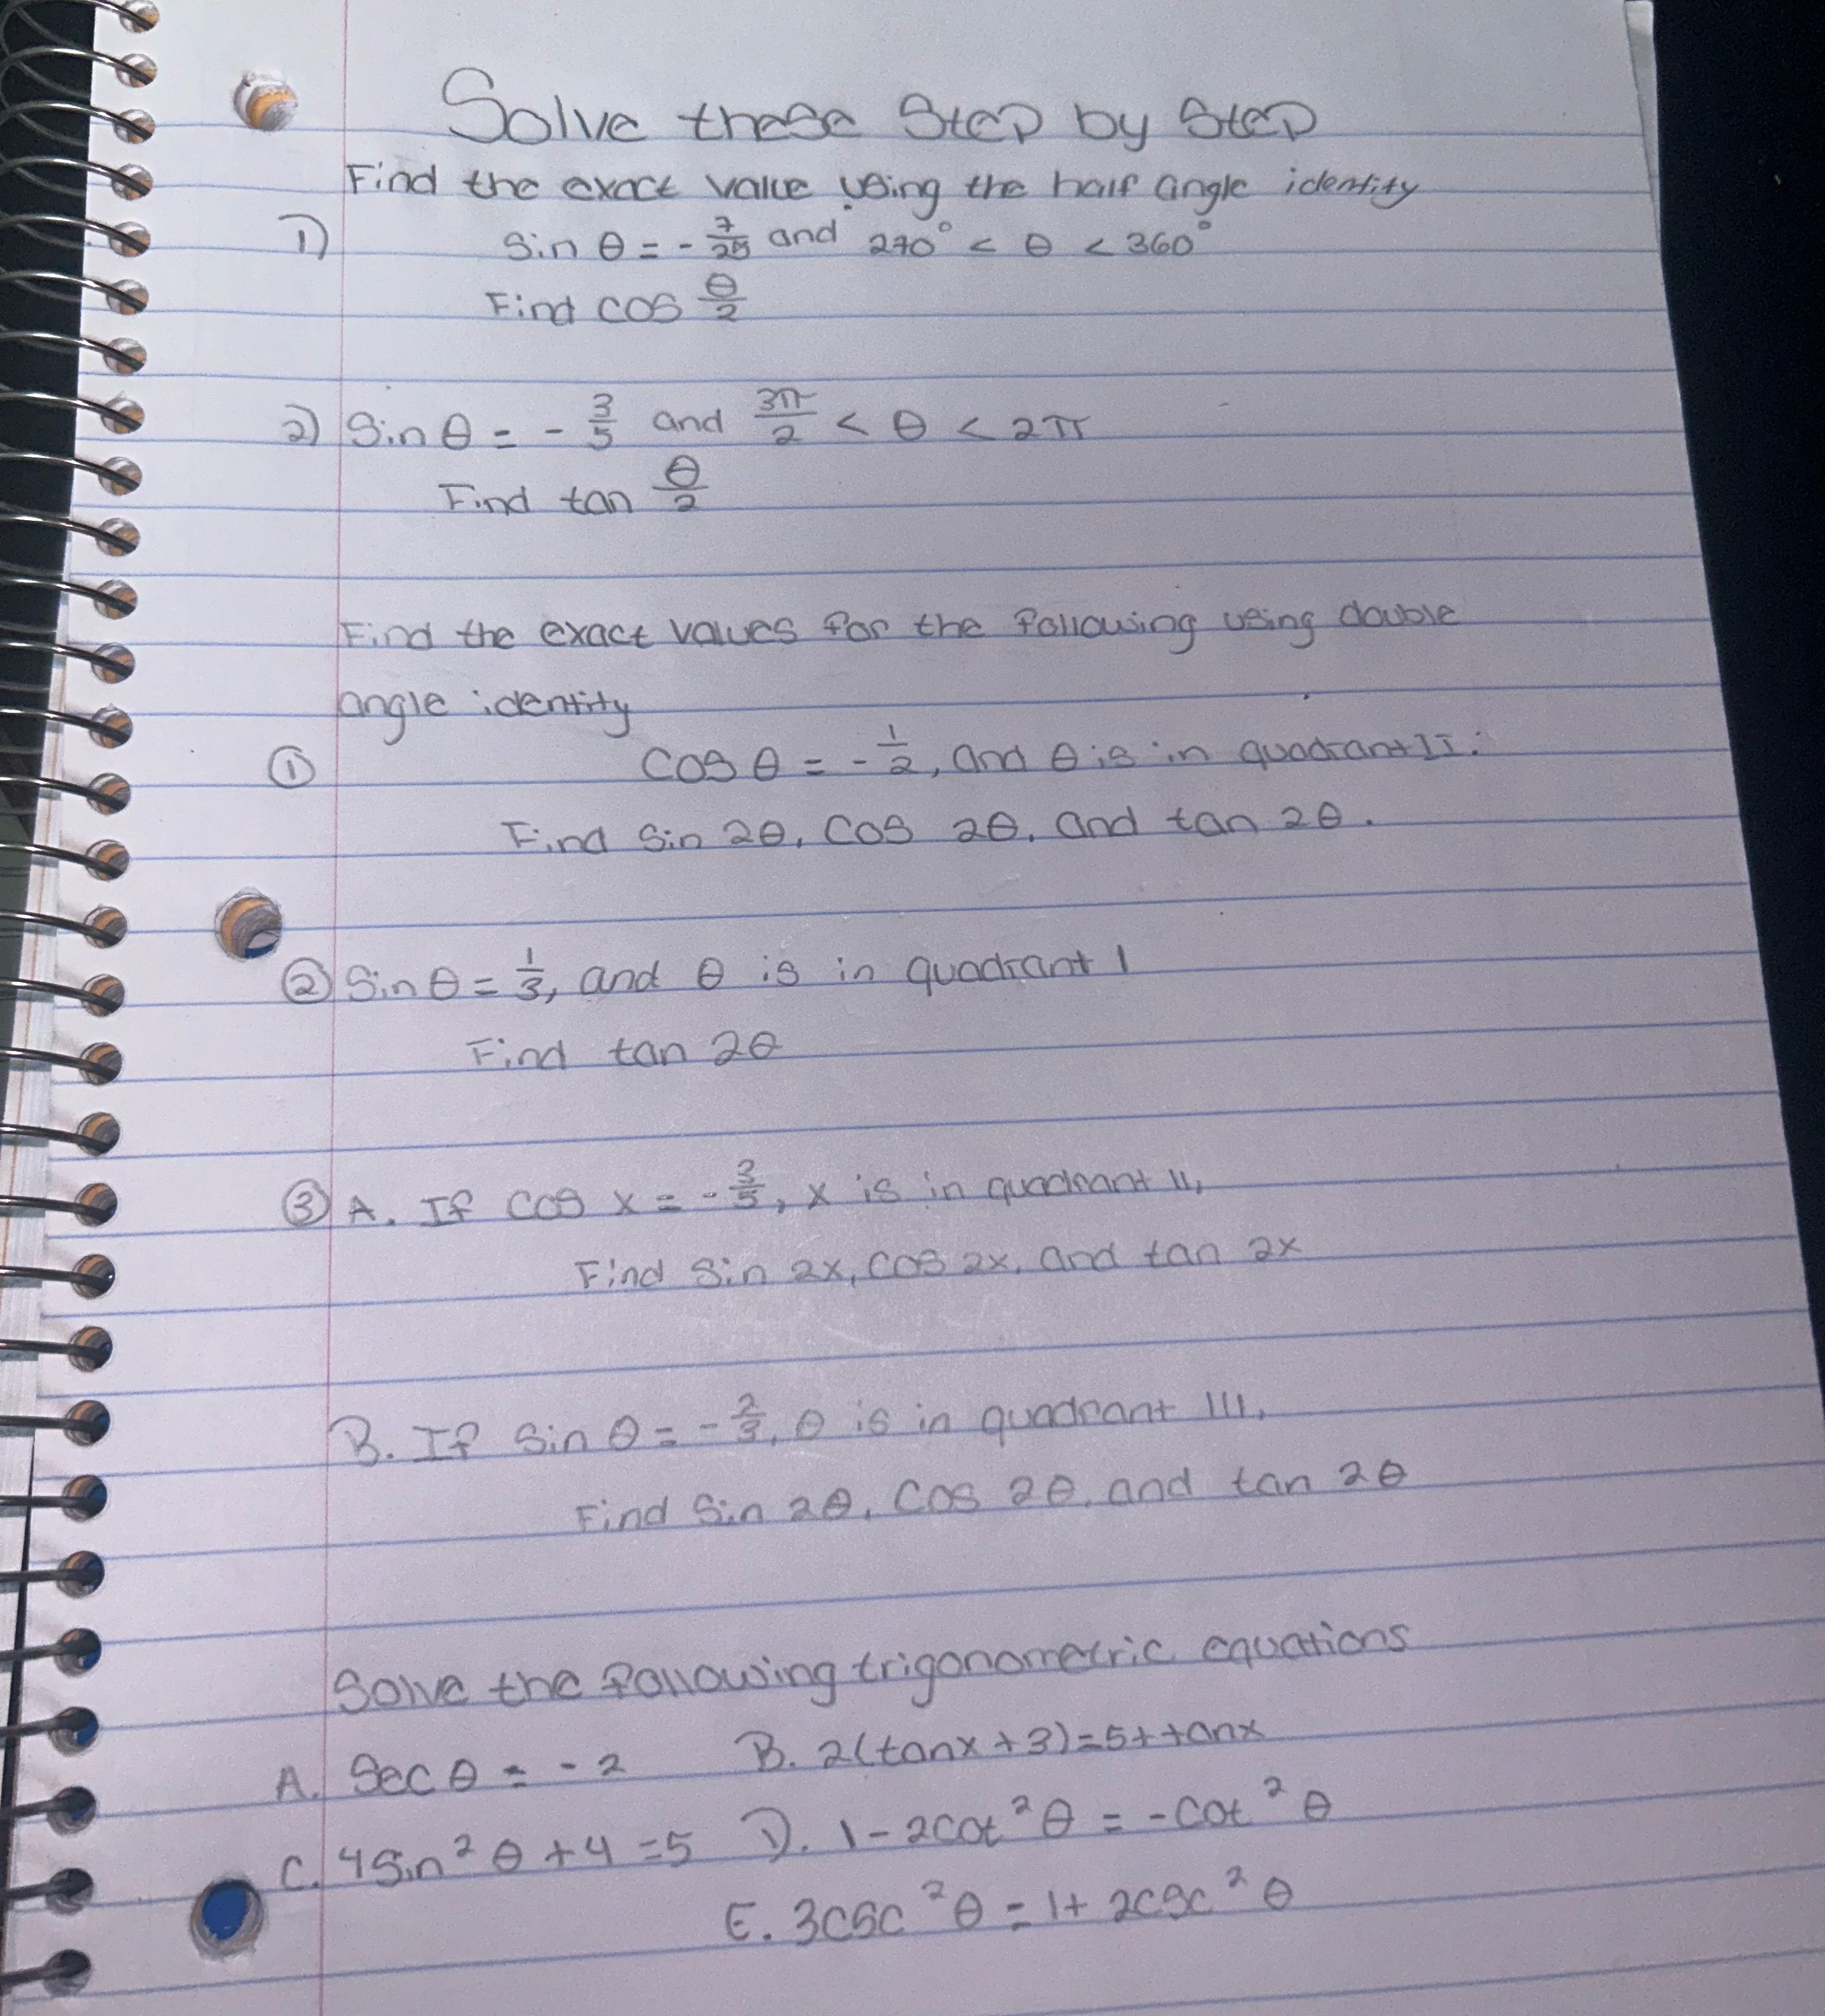 Solve these Step by Step
Find the exact value using the half angle identity
1) Sin θ = - 7/25 and 270° < θ < 360°
Find cos θ/2
2) Sin θ = - 3/5 and 3π/2 < θ < 2π
Find tan θ/2
Find the exact values for the following using double
angle identity
① Cos θ = - 1/2, and θ is in quadrant II.
Find Sin 2θ, Cos 2θ, and tan 2θ.
② Sin θ = 1/3, and θ is in quadrant I
Find tan 2θ
③ A. If cos x = - 3/5, x is in quadrant II,
Find Sin 2x, Cos 2x, and tan 2x
B. If Sin θ = - 2/3, θ is in quadrant III,
Find Sin 2θ, Cos 2θ, and tan 2θ
Solve the following trigonometric equations
A. Sec θ = - 2 B. 2(tanx + 3) = 5 + tanx
C. 4Sin² θ + 4 = 5 D. 1 - 2cot² θ = - cot² θ
E. 3csc² θ = 1 + 2csc² θ